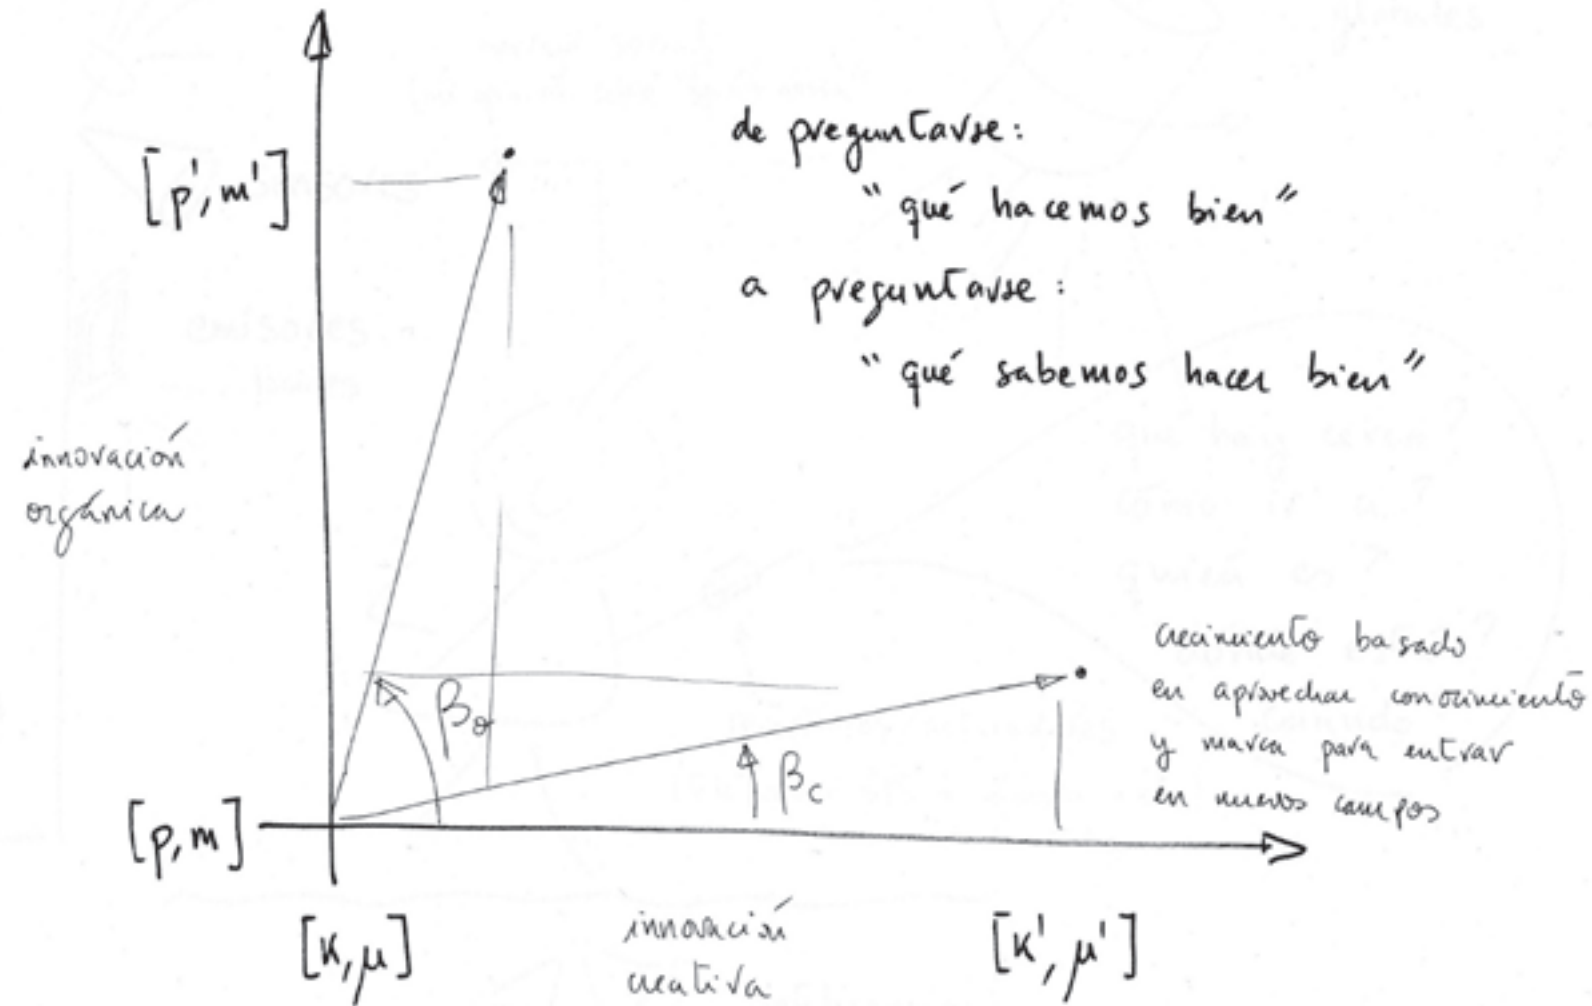 [p', m']
de preguntarse:
"qué hacemos bien"
a preguntarse:
"qué sabemos hacer bien"
innovación
orgánica
crecimiento basado
en aprovechar conocimiento
y marca para entrar
en nuevos campos
βo
βc
[p, m]
[K, μ]
innovación
creativa
[K', μ']